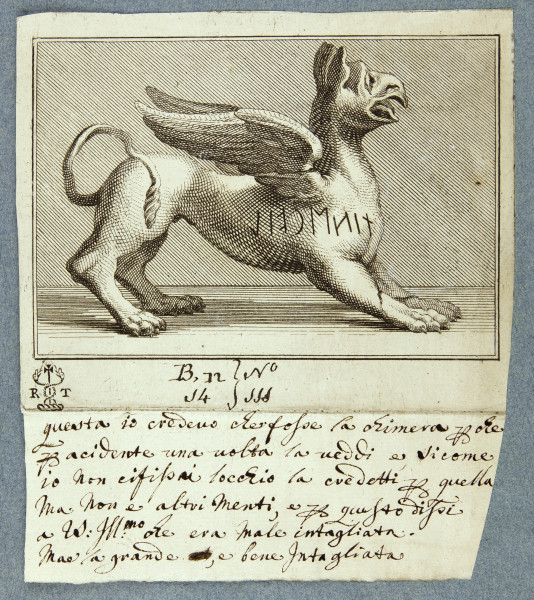 R T
B. 12 } Nº
14 } III
questa io credeuo che fosse la chimera p che
p acidente una uolta la ueddi e sicome
io non cifissai locchio la credetti p quella
Ma non e altri menti, e p questo dissi
a V: Ill.mo che era male intagliata.
Ma e la grande e bene Intagliata